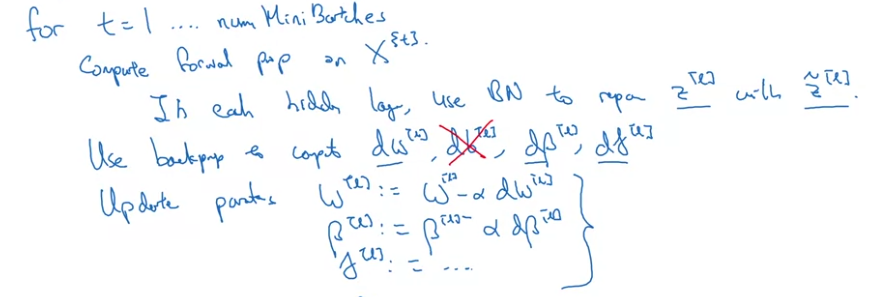 for t = 1 .... num Mini Batches
Compute forwal pop on X^{t}.
In eah hidden lay, use BN to repan z^[l] with z̃^[l].
Use backprop to compt dw^[l], db^[l], dβ^[l], dγ^[l]
Update params W^[l] := W^[l] - α dw^[l]
β^[l] := β^[l] - α dβ^[l]
γ^[l] := ....